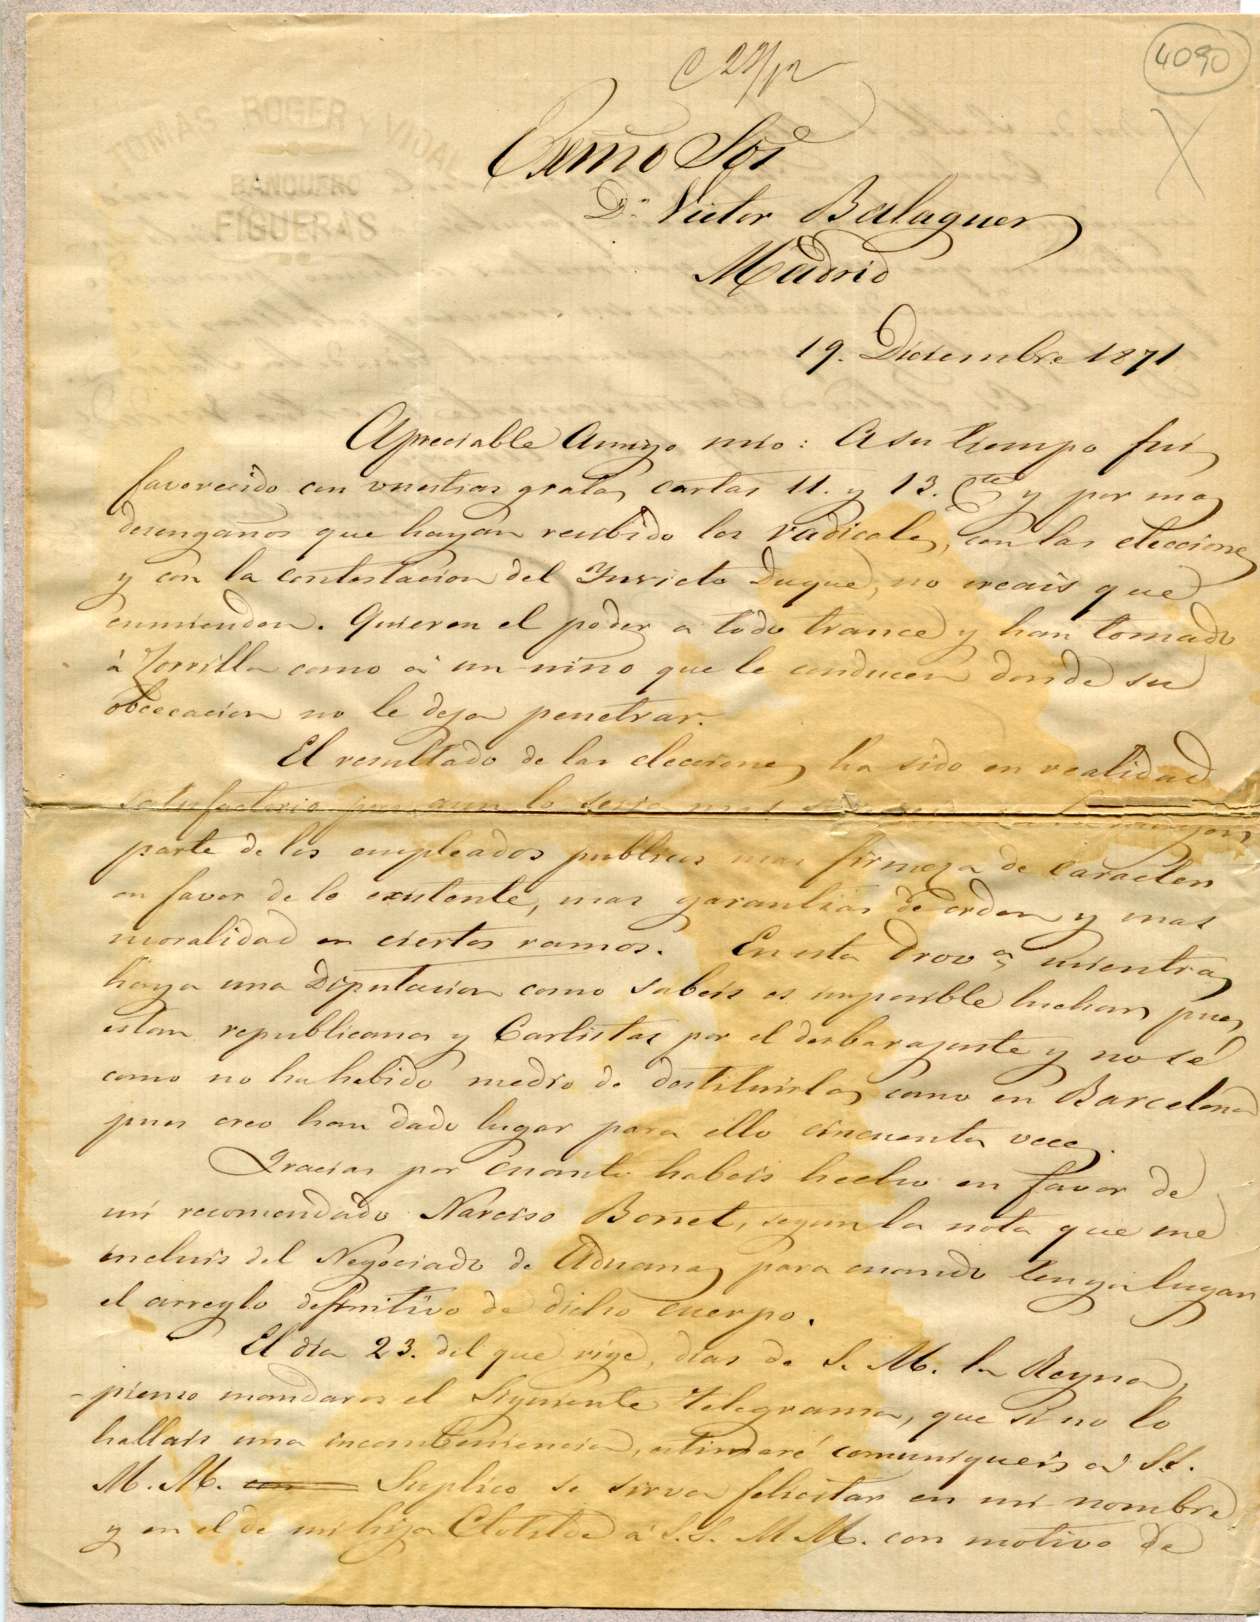 C 22/12
4090
TOMAS ROGER Y VIDAL
BANQUERO
FIGUERAS
Exmo Sor
Dn Victor Balaguer
Madrid
19. Diciembre 1871
Apreciable Amigo mio: A su tiempo fui
favorecido con vuestras gratas cartas 11. y 13. Cte y por mas
desengaños que hayan recibido los radicales, con las elecciones
y con la contestacion del Invicto Duque, no creais que
enmienden. Quieren el poder a todo trance y han tomado
á Zorrilla como á un niño que le conducen donde su
obcecacion no le deja penetrar.
El resultado de las elecciones ha sido en realidad
satisfactorio, pues aun lo seria mas si mayor
parte de los empleados publicos mas firmeza de caracter
en favor de lo existente, mas garantias de orden y mas
moralidad en ciertos ramos. En esta Prova mientras
haya una Diputacion como sabeis es imposible luchar, pues
estan republicanos y Carlistas por el desbarajuste y no sé
como no ha habido medio de destituirlas como en Barcelona
pues creo han dado lugar para ello cincuenta veces.
Gracias por cuanto habeis hecho en favor de
mi recomendado Narciso Bonet, segun la nota que me
incluis del Negociado de Aduanas para cuando tenga lugar
el arreglo definitivo de dicho cuerpo.
El dia 23. del que rige, dias de S. M. la Reyna,
pienso mandaros el siguiente telegrama, que si no lo
hallais una inconveniencia, estimaré comuniqueis á S.S.
M. M. Suplico se sirva felicitar en mi nombre
y en el de mi hija Clotilde á S.S. M M. con motivo de